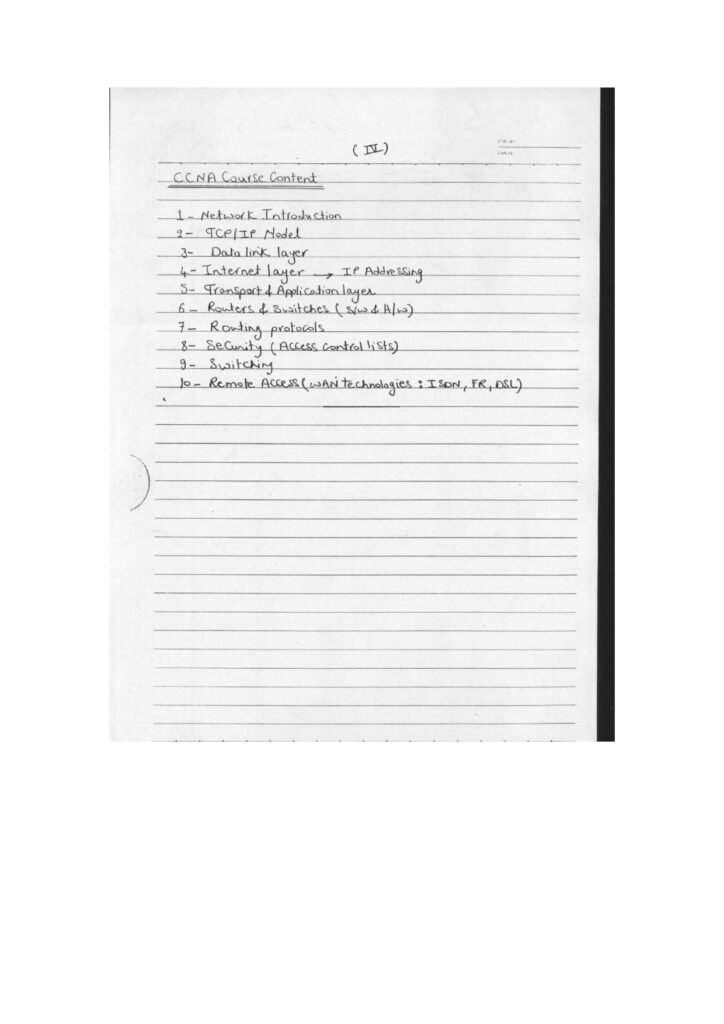 (IV)
CCNA Course Content
1- Network Introduction
2- TCP/IP Model
3- Data link layer
4- Internet layer → IP Addressing
5- Transport & Application layer
6- Routers & Switches (S/W & H/W)
7- Routing protocols
8- Security (Access control lists)
9- Switching
10- Remote Access (WAN technologies : ISDN, FR, DSL)